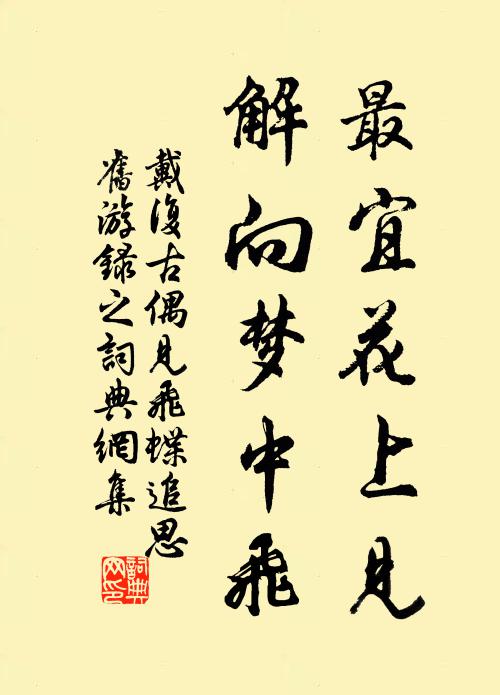 最宜花上見
解向梦中飛
戴復古偶見飛蝶追思
舊游録之詞典網集
詞典
网印